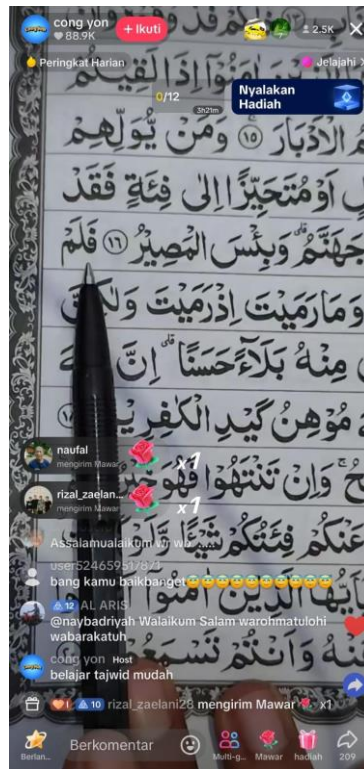 cong yon
88.9K
+ Ikuti
2.5K
Peringkat Harian
Jelajahi
0/12
3h21m
Nyalakan
Hadiah
اٰمَنُوْٓا اِذَا لَقِيْتُمُ
الْاَدْبَارَ ۚ ١٥ وَمَنْ يُّوَلِّهِمْ
اَوْ مُتَحَيِّزًا اِلٰى فِئَةٍ فَقَدْ
جَهَنَّمُ ۗ وَبِئْسَ الْمَصِيْرُ ١٦ فَلَمْ
وَمَا رَمَيْتَ اِذْ رَمَيْتَ
مِنْهُ بَلَاۤءً حَسَنًا ۗ اِنَّ
مُوْهِنُ كَيْدِ الْكٰفِرِيْنَ
وَاِنْ تَنْتَهُوْا فَهُوَ
naufal
mengirim Mawar
x1
rizal_zaelan...
mengirim Mawar
x1
عَنْكُمْ فِئَتُكُمْ شَيْـًٔا
Assalamualaikum wr wb
user524659517871
bang kamu baikbanget😇😇😇😇😇😇😇😇😇😇
الَّذِيْنَ اٰمَنُوْٓا
12 AL ARIS
@naybadriyah Walaikum Salam warohmatulohi
wabarakatuh
وَاَنْتُمْ تَسْمَعُوْنَ
cong yon Host
belajar tajwid mudah
1 10 rizal_zaelani28 mengirim Mawar x1
Berkomentar
Berlan...
Multi-g...
Mawar
hadiah
209